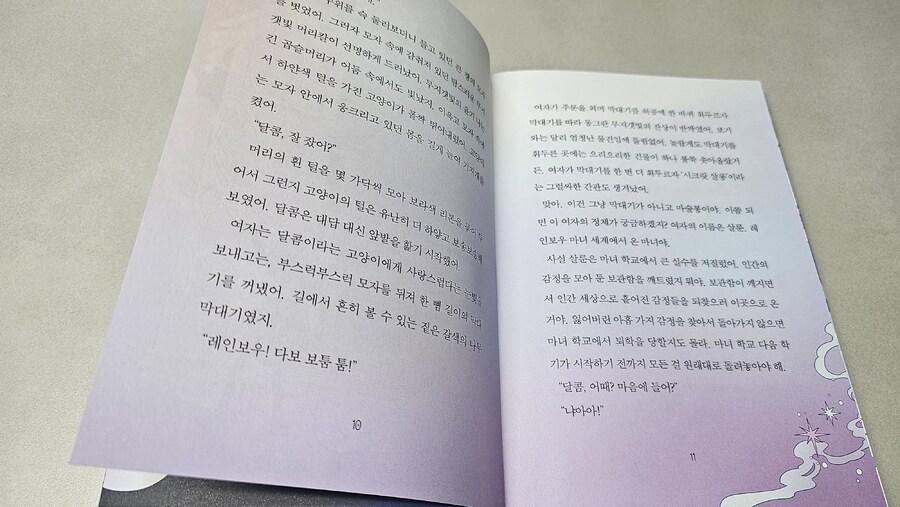 주위를 슥 둘러보더니 쓰고 있던 큰 챙의 모자
를 벗었어. 그러자 모자 속에 감춰져 있던 탐스러운
갯빛 머리칼이 선명하게 드러났어. 무지갯빛의 윤기 나는
긴 곱슬머리가 어둠 속에서도 빛났지. 이윽고 모자 속에
서 하얀색 털을 가진 고양이가 폴짝 뛰어내렸어. 고양이
는 모자 안에서 웅크리고 있던 몸을 길게 늘여 기지개를
켰어.
“달콤, 잘 잤어?”
머리의 흰 털을 몇 가닥씩 모아 보라색 리본을
어서 그런지 고양이의 털은 유난히 더 하얗고 보송보송해
보였어. 달콤은 대답 대신 앞발을 핥기 시작했어.
여자는 달콤이라는 고양이에게 사랑스럽다는 눈빛을
보내고는, 부스럭부스럭 모자를 뒤져 한 뼘 길이의 막대
기를 꺼냈어. 길에서 흔히 볼 수 있는 짙은 갈색의 나무
막대기였지.
“레인보우! 다보 보툼 툼!”
10
여자가 주문을 외며 막대기를 허공에 한 바퀴 휘두르자
막대기를 따라 동그란 무지갯빛의 잔상이 반짝였어. 보기
와는 달리 엄청난 물건임에 틀림없어. 놀랍게도 막대기를
휘두른 곳에는 으리으리한 건물이 하나 불쑥 솟아올랐거
든. 여자가 막대기를 한 번 더 휘두르자 ‘시크릿 살롱’이라
는 그럴싸한 간판도 생겨났어.
맞아. 이건 그냥 막대기가 아니고 마술봉이야. 이쯤 되
면 이 여자의 정체가 궁금하겠지? 여자의 이름은 살룬. 레
인보우 마녀 세계에서 온 마녀야.
사실 살룬은 마녀 학교에서 큰 실수를 저질렀어. 인간의
감정을 모아 둔 보관함을 깨트렸지 뭐야. 보관함이 깨지면
서 인간 세상으로 흩어진 감정들을 되찾으러 이곳으로 온
거야. 잃어버린 아홉 가지 감정을 찾아서 돌아가지 않으면
마녀 학교에서 퇴학을 당할지도 몰라. 마녀 학교 다음 학
기가 시작하기 전까지 모든 걸 원래대로 돌려놓아야 해.
“달콤, 어때? 마음에 들어?”
“냐아아!”
11